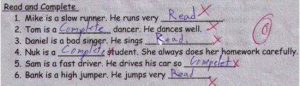 Read and Complete
1. Mike is a slow runner. He runs very Read
2. Tom is a Complete dancer. He dances well.
3. Daniel is a bad singer. He sings Read.
4. Nuk is a Complete student. She always does her homework carefully.
5. Sam is a fast driver. He drives his car so Complete
6. Bank is a high jumper. He jumps very Read
0